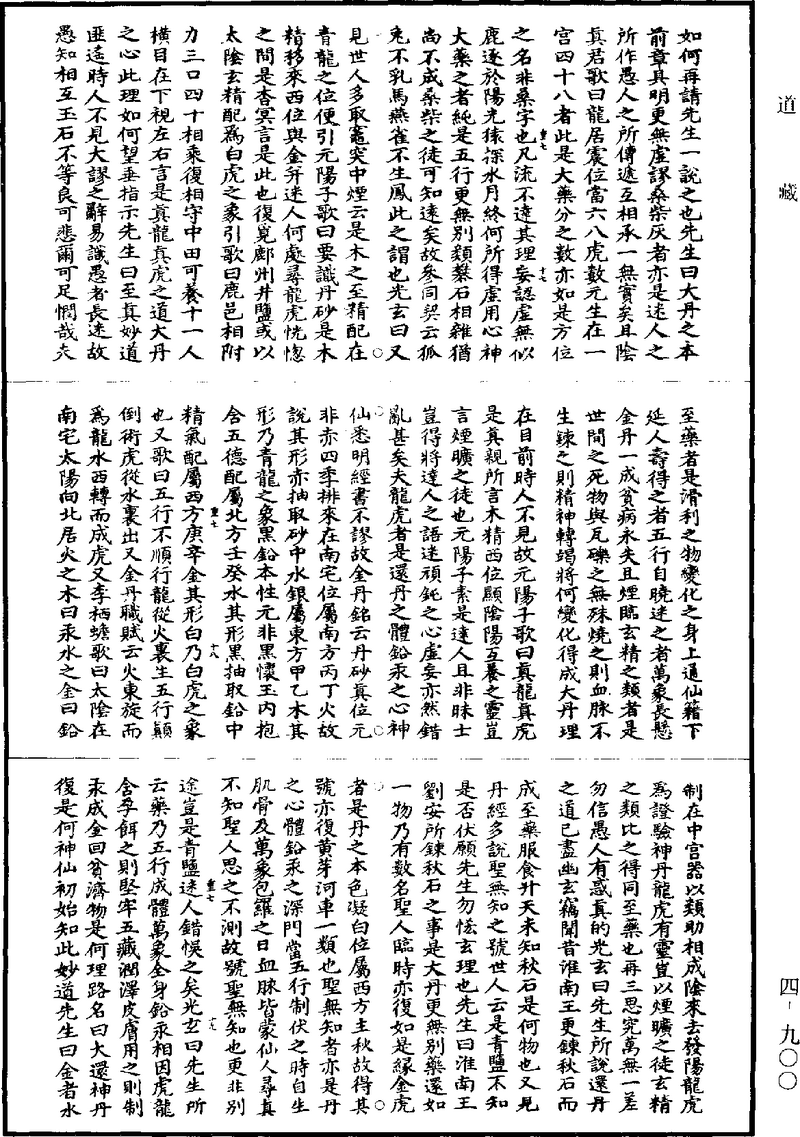 道藏
四-九〇〇
如何再請先生一說之也先生曰大丹之本
前章具明更無虛謬桑柴灰者亦是迷人之
所作愚人之所傳遞互相承一無實矣且陰
真君歌曰龍居震位當六八虎數元生在一
宮四十八者此是大藥分之數亦如是方位
之名非桑字也凡流不達其理妄認虛無似
鹿逐於陽光猿深水月終何所得虛用心神
大藥之者純是五行更無別類礬石相雜猶
尚不成桑柴之徒可知遠矣故參同契云狐
兔不乳馬燕雀不生鳳此之謂也光玄曰又
見世人多取竈突中煙云是木之至精配在
青龍之位便引元陽子歌曰要識丹砂是木
精移來西位與金并迷人何處尋龍虎恍惚
之間是杳冥言是此也復覓鄜州井鹽或以
太陰玄精配為白虎之象引歌曰鹿邑相附
力三口四十相乘復相守中田可養十一人
橫目在下視左右言是真龍真虎之道大丹
之心此理如何望垂指示先生曰至真妙道
匪遙時人不見大謬之辭易識愚者長迷故
愚知相互玉石不等良可悲爾可足憫哉夫
至藥者是滑利之物變化之身上通仙籍下
延人壽得之者五行自曉迷之者萬象長懸
金丹一成貧病永失且煙臨玄精之類者是
世間之死物與瓦礫之無殊燒之則血脉不
生鍊之則精神轉竭將何變化得成大丹理
在目前時人不見故元陽子歌曰真龍真虎
是真親所言木精西位顯陰陽互養之靈豈
言煙曠之徒也元陽子素是達人且非昧士
豈得將達人之語迷頑鈍之心虛妄亦然錯
亂甚矣夫龍虎者是還丹之體鉛汞之心神
仙悉明經書不謬故金丹銘云丹砂真位元
非亦四季排來在南宅位屬南方丙丁火故
說其形亦抽取砂中水銀屬東方甲乙木其
形乃青龍之象黑鉛本性元非黑懷玉內抱
含五德配屬北方壬癸水其形黑抽取鉛中
精氣配屬西方庚辛金其形白乃白虎之象
也又歌曰五行不順行龍從火裏生五行顛
倒術虎從水裏出又金丹職賦云火東旋而
為龍水西轉而成虎又李栖蟾歌曰太陰在
南宅太陽向北居火之木曰汞水之金曰鉛
制在中宮器以類助相成陰來去發陽龍虎
為證驗神丹龍虎有靈豈以煙曠之徒玄精
之類比之得同至藥也再三思究萬無一差
勿信愚人有惑真的光玄曰先生所說還丹
之道已盡幽玄竊聞昔淮南王更鍊秋石而
成至藥服食升天未知秋石是何物也又見
丹經多說聖無知之號世人云是青鹽不知
是否伏願先生勿恡玄理也先生曰淮南王
劉安所鍊秋石之事是大丹更無別藥還如
一物乃有數名聖人臨時亦復如是緣金虎
者是丹之本色凝白位屬西方主秋故得其
號亦復黃芽河車一類也聖無知者亦是丹
之心體鉛汞之深門當五行制伏之時自生
肌骨及萬象包羅之日血脉皆蒙仙人尋真
不知聖人思之不測故號聖無知也更非別
途豈是青鹽迷人錯悞之矣光玄曰先生所
云藥乃五行成體萬象全身鉛汞相因虎龍
含孕餌之則堅牢五藏潤澤皮膚用之則制
汞成金回貧濟物是何理路名曰大還神丹
復是何神仙初始知此妙道先生曰金者水